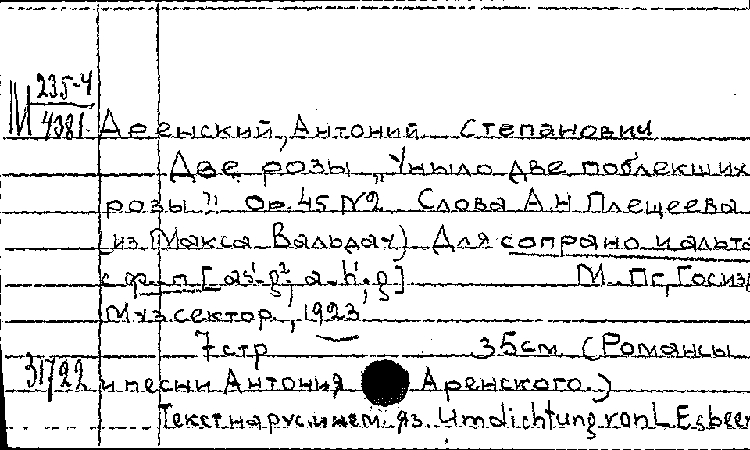 М 235-4
4381
Аренский, Антоний Степанович
Две розы „Уныло две поблекших
розы". Ор. 45 №2. Слова А.Н Плещеева
(из Макса Вальдау) Для сопрано и альта
с ф.-п [as¹-g²; a-h¹; g] М.-Пг, Госизд
Муз.сектор, 1923
7 стр 35см. (Романсы
31722 и песни Антония Аренского.)
Текст на рус. и нем. яз. Umdichtung von L Esbeer